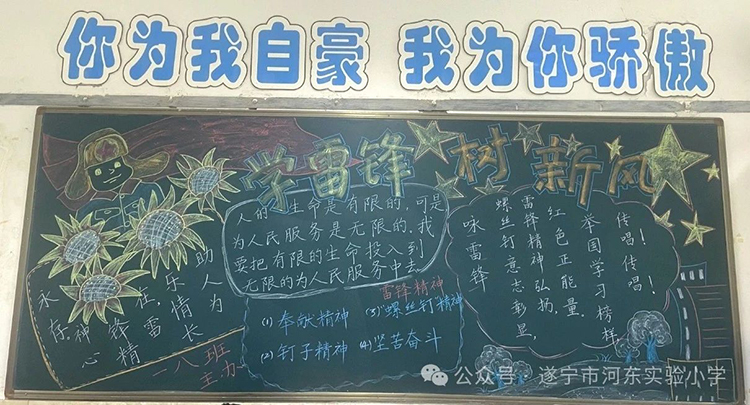 你为我自豪 我为你骄傲
学雷锋 树新风
人的生命是有限的,可是
为人民服务是无限的,我
要把有限的生命投入到
无限的为人民服务中去
助人为
乐情长
在,雷
锋精
神心
永存
一八班
主办
雷锋精神
(1)奉献精神 (3)螺丝钉精神
(2)钉子精神 (4)坚苦奋斗
咏雷锋
螺丝钉意志彰显,
雷锋精神弘扬,
红色正能量.
举国学习榜样,
传唱!传唱!
公众号 · 遂宁市河东实验小学